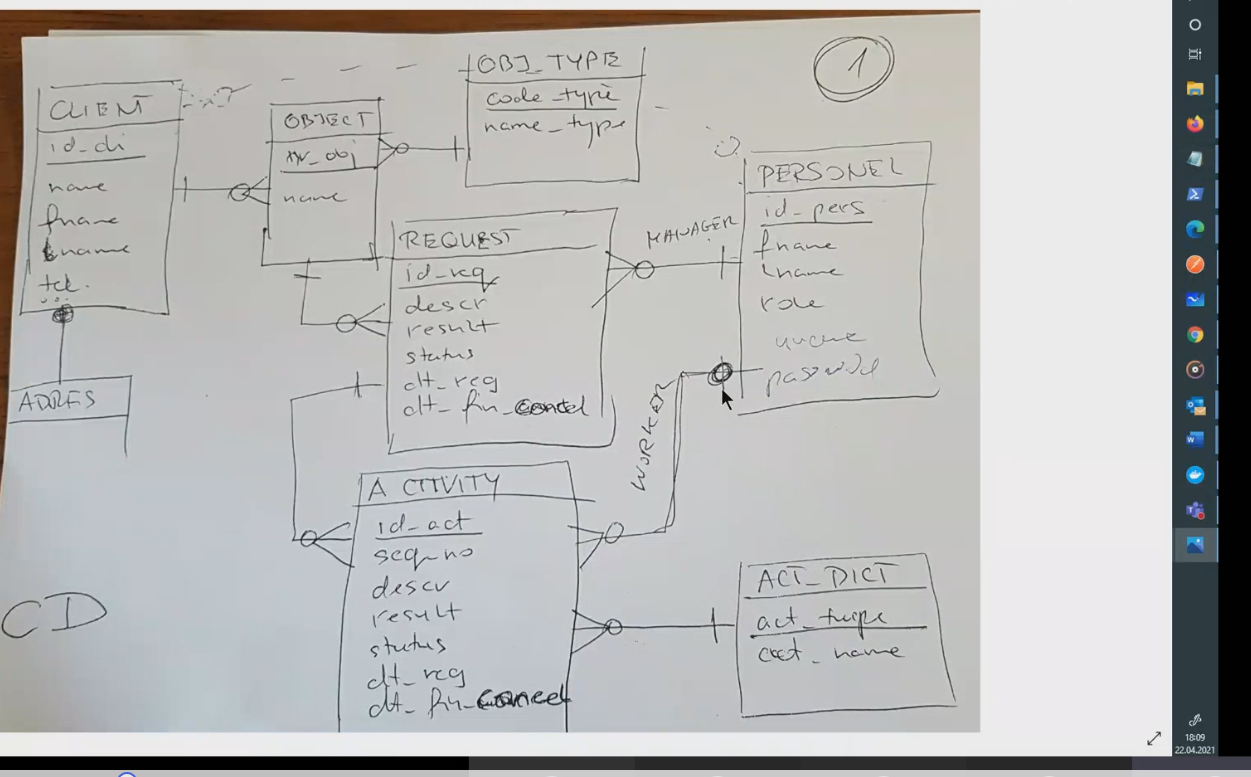 1
CLIENT
id_cli
name
fname
lname
tel.
...
ADRES
OBJECT
nr_obj
name
OBJ_TYPE
code_type
name_type
REQUEST
id_req
descr
result
status
dt_reg
dt_fin_cancel
MANAGER
PERSONEL
id_pers
fname
lname
role
uname
WORKER
ACTIVITY
id_act
seq_no
descr
result
status
dt_reg
dt_fin_cancel
ACT_DICT
act_type
act_name
CD
18:09
22.04.2021